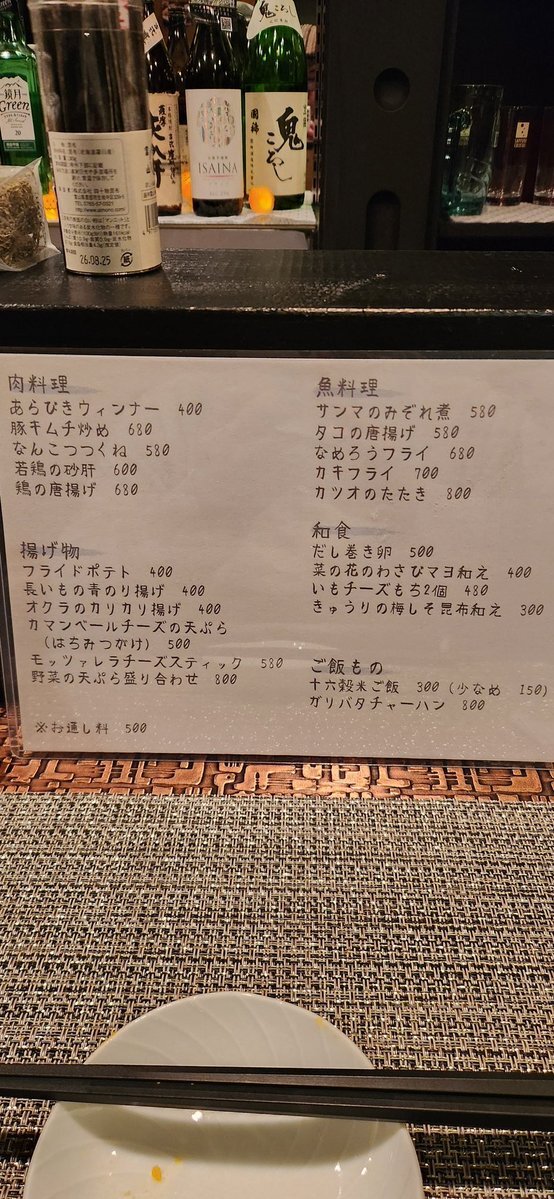 鏡月
Green
20
ISAINA
鬼ころし
國稀
鬼ころし
26.08.25
肉料理
あらびきウィンナー 400
豚キムチ炒め 680
なんこつつくね 580
若鶏の砂肝 600
鶏の唐揚げ 680
揚げ物
フライドポテト 400
長いもの青のり揚げ 400
オクラのカリカリ揚げ 400
カマンベールチーズの天ぷら
(はちみつがけ) 500
モッツァレラチーズスティック 580
野菜の天ぷら盛り合わせ 800
※お通し料 500
魚料理
サンマのみぞれ煮 580
タコの唐揚げ 580
なめろうフライ 680
カキフライ 700
カツオのたたき 800
和食
だし巻き卵 500
菜の花のわさびマヨ和え 400
いもチーズもち2個 480
きゅうりの梅しそ昆布和え 300
ご飯もの
十六穀米ご飯 300 (少なめ 150)
ガリバタチャーハン 800